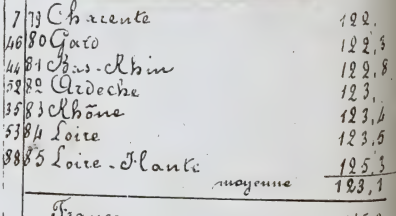 7 79 Charente 122,
46 80 Gard 122,3
44 81 Bas-Rhin 122,8
52 82 Ardèche 123,
35 83 Rhône 123,4
53 84 Loire 123,5
88 85 Loire-Infante 125,3
moyenne 123,1